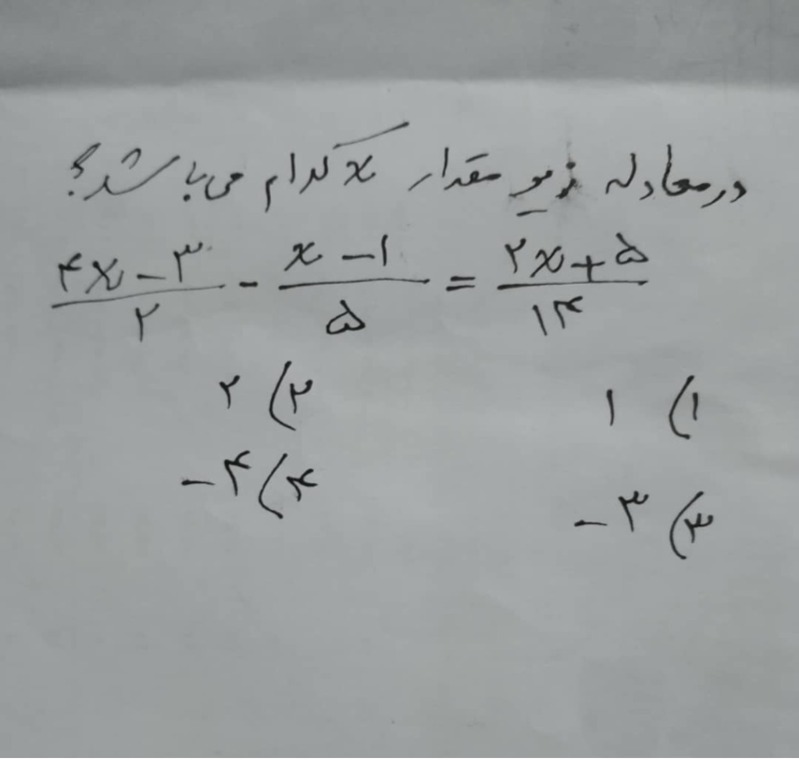 در معادله زیر مقدار x کدام می باشد؟
(۴x − ۳)/۲ - (x − ۱)/۵ = (۲x + ۵)/۱۴
۱) ۱
۲) ۲
۳) ۳−
۴) ۴−